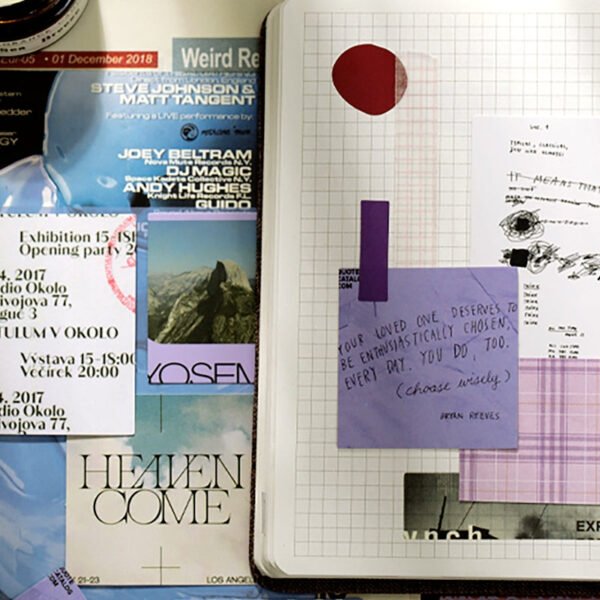 • 01 December 2018
Weird Re
STEVE JOHNSON &
MATT TANGENT
Featuring a LIVE performance by:
JOEY BELTRAM
Nova Mute Records N.Y.
DJ MAGIC
Space Kadets Collective N.Y.
ANDY HUGHES
Knight Life Records F.L.
GUIDO
Exhibition 15-18
Opening party 2
4. 2017
dio Okolo
ivojova 77,
TULUM V OKOLO
Výstava 15-18:00
Večírek 20:00
4. 2017
dio Okolo
ivojova 77,
YOSEM
HEAVEN
COME
21-23
LOS ANGEL
QUOTE
CATALOG
.COM
IT MEANS THAT
QUOTE
CATALOG
.COM
YOUR LOVED ONE DESERVES TO
BE ENTHUSIASTICALLY CHOSEN.
EVERY DAY. YOU DO, TOO.
(choose wisely)
BRYAN REEVES
ynch
EXP